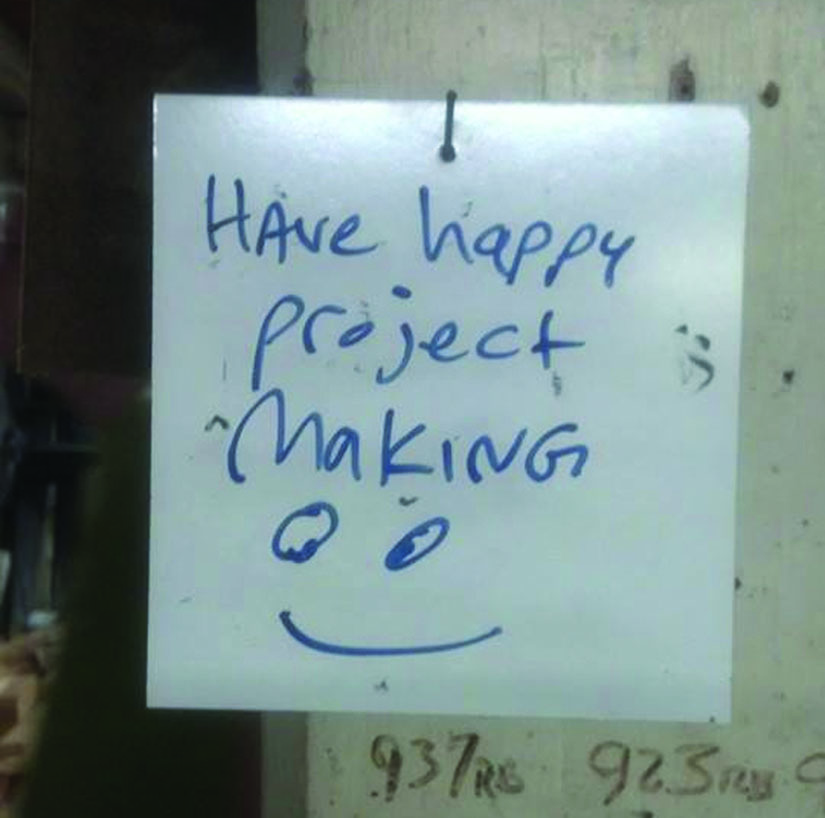 HAve happy
project
MaKiNG
937RB 923RB